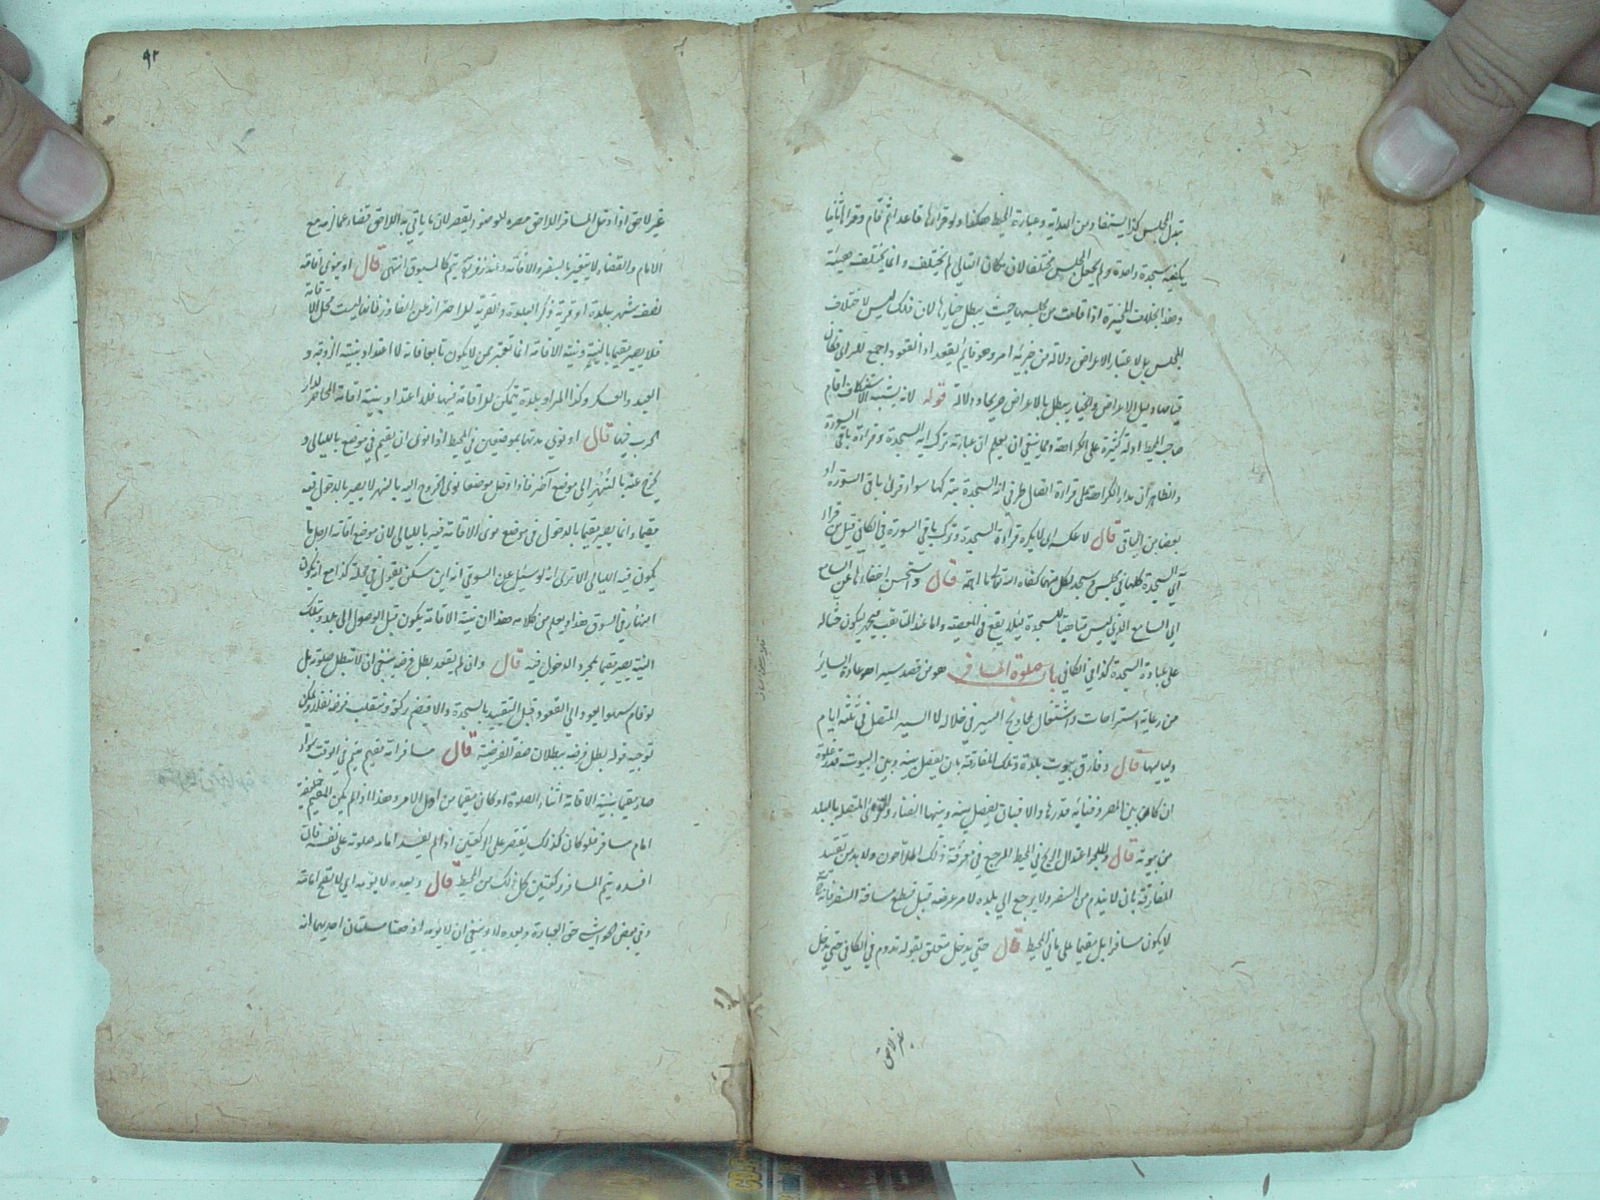 تبدل المجلس كذا يستفاد من الهداية وعبارة المحيط هكذا ولو قرأها قاعدا ثم قام وقرأها ثانيا
يكفيه سجدة واحدة ولم يجعل المجلس مختلفا لان مكان التالي لم يختلف وانما يختلف هيئته
وهذا بخلاف المخيرة اذا قامت من مجلسها حيث يبطل خيارها لان ذلك ليس لاختلاف
المجلس بل لاعتبار الاعراض دلالة من حزبه امر وهو قائم يقعد اذ القعود اجمع للراي فكان
قيامها دليل الاعراض والخيار يبطل بالاعراض صريحا ودلالة قوله لانه يشبه الاستنكاف اقام
صاحب المحيط ادلة كثيرة على الكراهة ومما ينبغي ان يعلم ان عبارة ترك اية السجدة وقراءة باقي السورة
والظاهر ان مدار الكراهة على قراءة اتصال طرفي اية السجدة بتركها سواء قرأ باقي السورة او
بعضا من الباقي قال لا عكسه اي لا يكره قراءة السجدة وترك باقي السورة في الكافي قيل من قرأ
آي السجدة كلها في مجلس وسجد لكل منها كفاه الله تعالى ما اهمه قال واستحسن اخفاءها عن السامع
اي السامع الذي ليس متأهبا للسجدة لئلا يقع في المعصية واما عند المتأهب فيجهر ليكون حثا له
على عبادة السجدة كذا في الكافي باب صلوة المسافر هو من قصد سيرا هو عادة السائر
من رعاية استراحات واشتغال بحوائج السير في خلاله لا السير المتصل في ثلثة ايام
ولياليها قال وفارق بيوت بلده وتلك المفارقة بان يفصل بينه وبين البيوت قدر غلوة
ان كان بين المصر وفنائه قدرها والا فبان يفصل بينه وبينها الفناء والقرى المتصلة بالبلد
من بيوته قال وللبحر اعتدال الريح في المحيط المرجع في معرفة ذلك الملاحون ولا بد من تقييد
المفارقة بان لا يندم من السفر ولا يرجع الى بلده لامر عرضه قبل قطع مسافة السفر فانه
لا يكون مسافرا بل مقيما على ما في المحيط قال حتى يدخل متعلق بقوله تدوم وفي الكافي حتى يدخل
غير لاحق
٩٢
غير لاحق اذا دخل المسافر اللاحق مصره للوضوء لم يقصر لان ما يأتي به اللاحق قضاء عما لزمه مع
الامام والقضاء لا يتغير بالسفر والاقامة وعند زفر يتم كالمسبوق انتهى قال او ينوي اقامة
نصف شهر ببلدة او قرية ذكر البلدة والقرية للاحتراز عن المفاوز فانها ليست محل الاقامة
فلا يصير مقيما بالنية ونية الاقامة انما تعتبر ممن لا يكون تابعا فانه لا اعتداد بنية الزوجة و
العبد والعسكر وكذا المراد بلدة يتمكن للاقامة فيها فلا اعتداد بنية اقامة المحاصر لدار
الحرب فيها قال او نوى مدتها بموضعين في المحيط اذا نوى ان يقيم في موضع بالليالي و
يخرج عنه بالنهار الى موضع آخر فاذا دخل موضعا نوى الخروج اليه بالنهار لا يصير بالدخول فيه
مقيما وانما يصير مقيما بالدخول في موضع نوى الاقامة فيه بالليالي لان موضع اقامة الرجل ما
يكون فيه الليالي الا ترى انه لو سئل عن السوقي انه اين سكن يقول في محلة كذا مع انه يكون
ابنهار في السوق هذا ويعلم من كلامه هذا ان نية الاقامة يكون قبل الوصول الى بلد وبتلك
النية يصير مقيما بمجرد الدخول فيه قال وان لم يقعد بطل فرضه ينبغي ان لا تبطل صلوته بل
لو قام سهوا يعود الى القعود قبل التقييد بالسجدة والا فيضم ركعة وينقلب فرضه نفلا ويمكن
توجيه قوله بطل فرضه ببطلان صفة الفرضية قال مسافر امه مقيم يتم في الوقت سواء
صار مقيما بنية الاقامة اثناء الصلوة او كان مقيما من اول الامر وهذا اذا لم يكن المقيم خليفة
امام مسافر فلو كان كذلك يقتصر على الركعتين اذا لم يفسد امامه صلوته على نفسه فان
افسده يتم المسافر ركعتين كل ذلك من المحيط قال وبعده لا يؤمه اي لا يصح امامته
وفي بعض الحواشي حق العبارة وبعده لا وينبغي ان لا يؤمه اذ ههنا مسئلتان احديهما انه